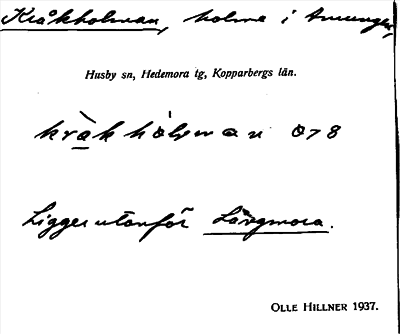 Kråkholman, holme i Amungen,
Husby sn, Hedemora tg, Kopparbergs län.
kràkhòlman 078
Ligger utanför Långmora.
OLLE HILLNER 1937.